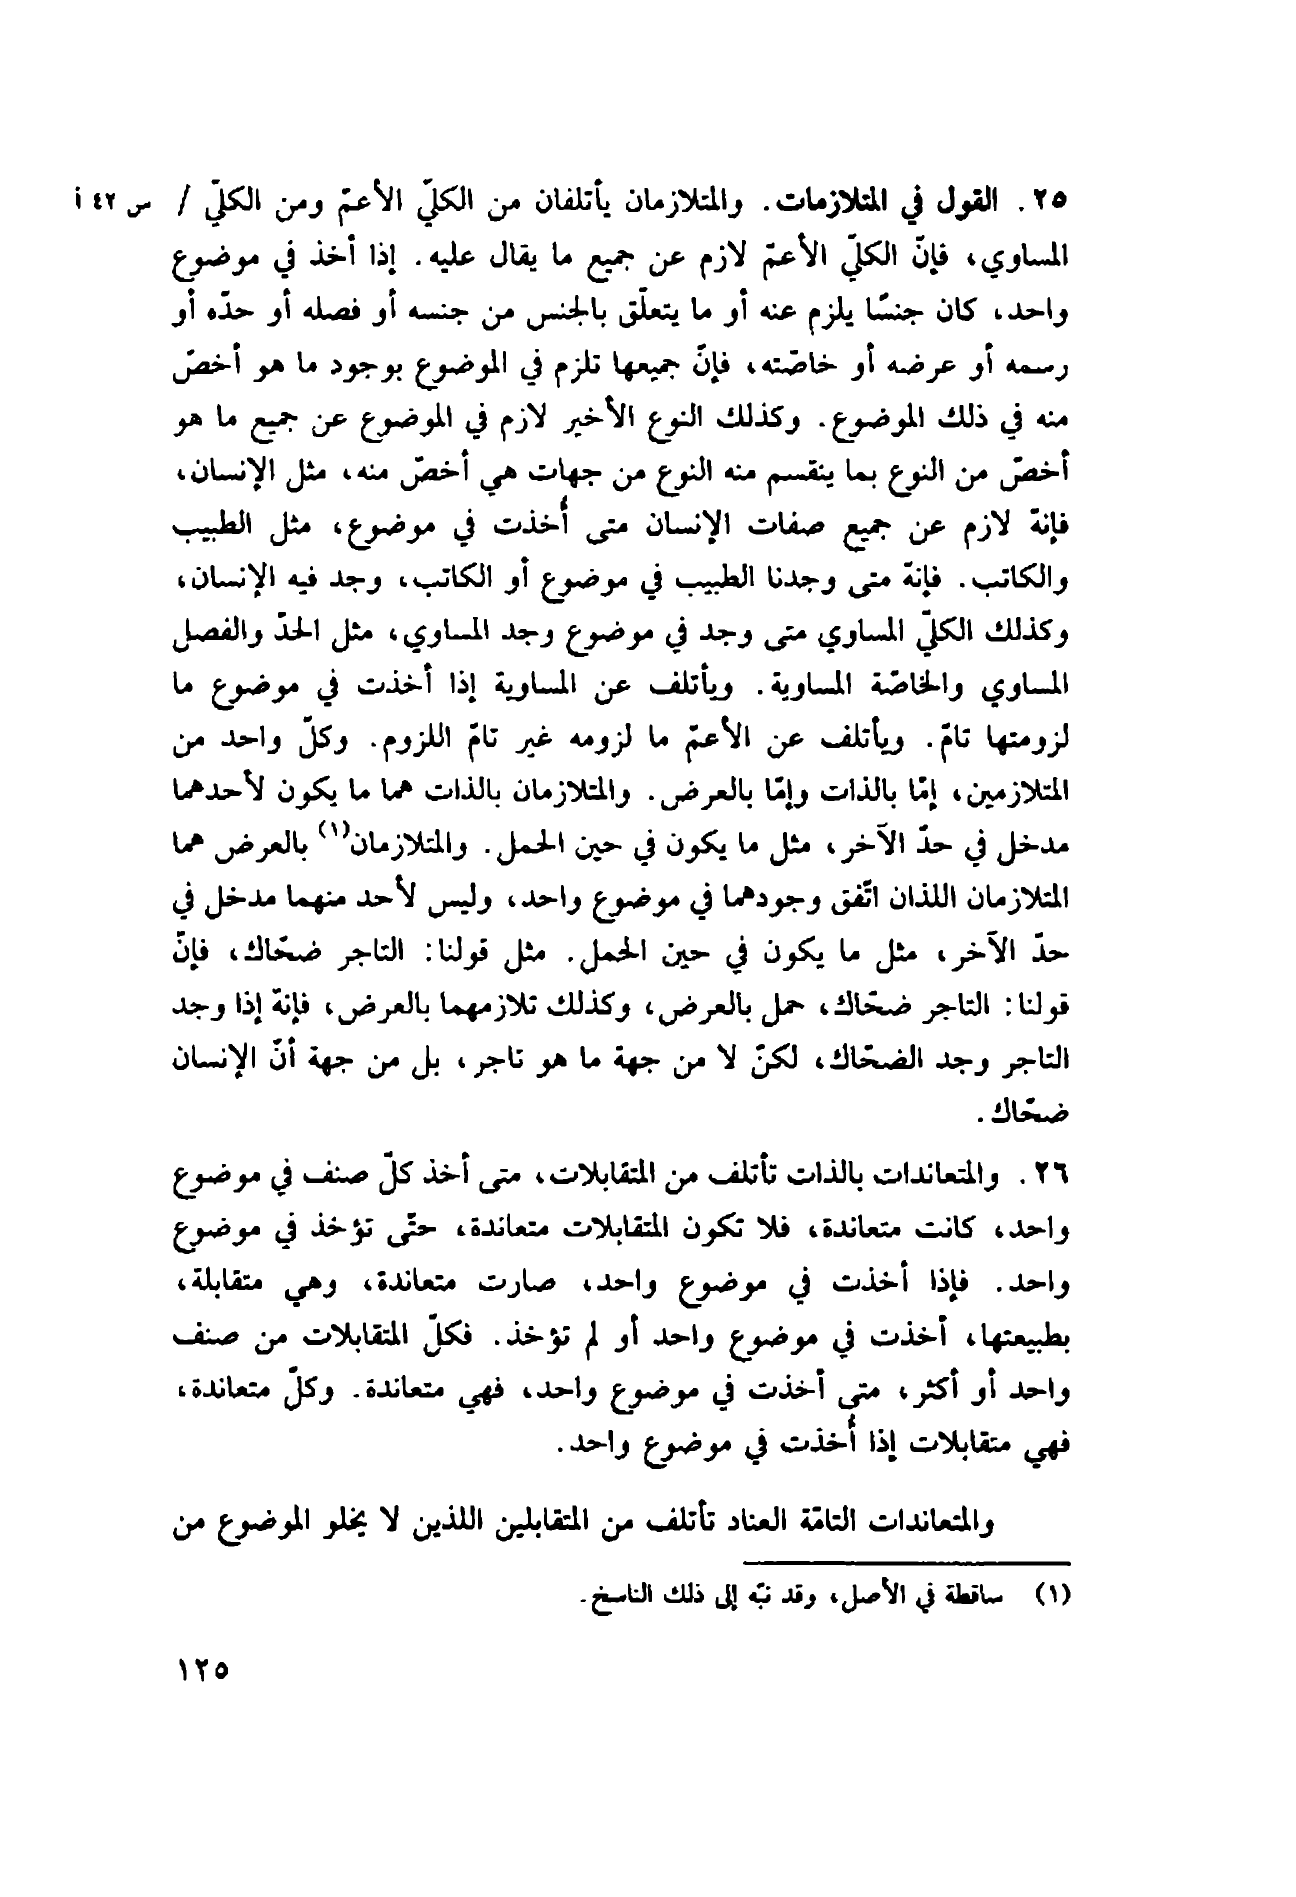 ٢٥. القول في المتلازمات. والمتلازمان يأتلفان من الكليّ الأعمّ ومن الكليّ / س ٤٢ أ
المساوي، فإنّ الكليّ الأعمّ لازم عن جميع ما يقال عليه. إذا أخذ في موضوع
واحد، كان جنسًا يلزم عنه أو ما يتعلّق بالجنس من جنسه أو فصله أو حدّه أو
رسمه أو عرضه أو خاصّته، فإنّ جميعها تلزم في الموضوع بوجود ما هو أخصّ
منه في ذلك الموضوع. وكذلك النوع الأخير لازم في الموضوع عن جميع ما هو
أخصّ من النوع بما ينقسم منه النوع من جهات هي أخصّ منه، مثل الإنسان،
فإنهّ لازم عن جميع صفات الإنسان متى أُخذت في موضوع، مثل الطبيب
والكاتب. فإنهّ متى وجدنا الطبيب في موضوع أو الكاتب، وجد فيه الإنسان،
وكذلك الكليّ المساوي متى وجد في موضوع وجد المساوي، مثل الحدّ والفصل
المساوي والخاصّة المساوية. ويأتلف عن المساوية إذا أخذت في موضوع ما
لزومتها تامّ. ويأتلف عن الأعمّ ما لزومه غير تامّ اللزوم. وكلّ واحد من
المتلازمين، إمّا بالذات وإمّا بالعرض. والمتلازمان بالذات هما ما يكون لأحدهما
مدخل في حدّ الآخر، مثل ما يكون في حين الحمل. والمتلازمان(١) بالعرض هما
المتلازمان اللذان اتّفق وجودهما في موضوع واحد، وليس لأحد منهما مدخل في
حدّ الآخر، مثل ما يكون في حين الحمل. مثل قولنا: التاجر ضحّاك، فإنّ
قولنا: التاجر ضحّاك، حمل بالعرض، وكذلك تلازمهما بالعرض، فإنهّ إذا وجد
التاجر وجد الضحّاك، لكنّ لا من جهة ما هو تاجر، بل من جهة أنّ الإنسان
ضحّاك.
٢٦. والمتعاندات بالذات تأتلف من المتقابلات، متى أخذ كلّ صنف في موضوع
واحد، كانت متعاندة، فلا تكون المتقابلات متعاندة، حتّى تؤخذ في موضوع
واحد. فإذا أخذت في موضوع واحد، صارت متعاندة، وهي متقابلة،
بطبيعتها، أخذت في موضوع واحد أو لم تؤخذ. فكلّ المتقابلات من صنف
واحد أو أكثر، متى أخذت في موضوع واحد، فهي متعاندة. وكلّ متعاندة،
فهي متقابلات إذا أُخذت في موضوع واحد.
والمتعاندات التامّة العناد تأتلف من المتقابلين اللذين لا يخلو الموضوع من
(١) ساقطة في الأصل، وقد نبّه إلى ذلك الناسخ.
١٢٥